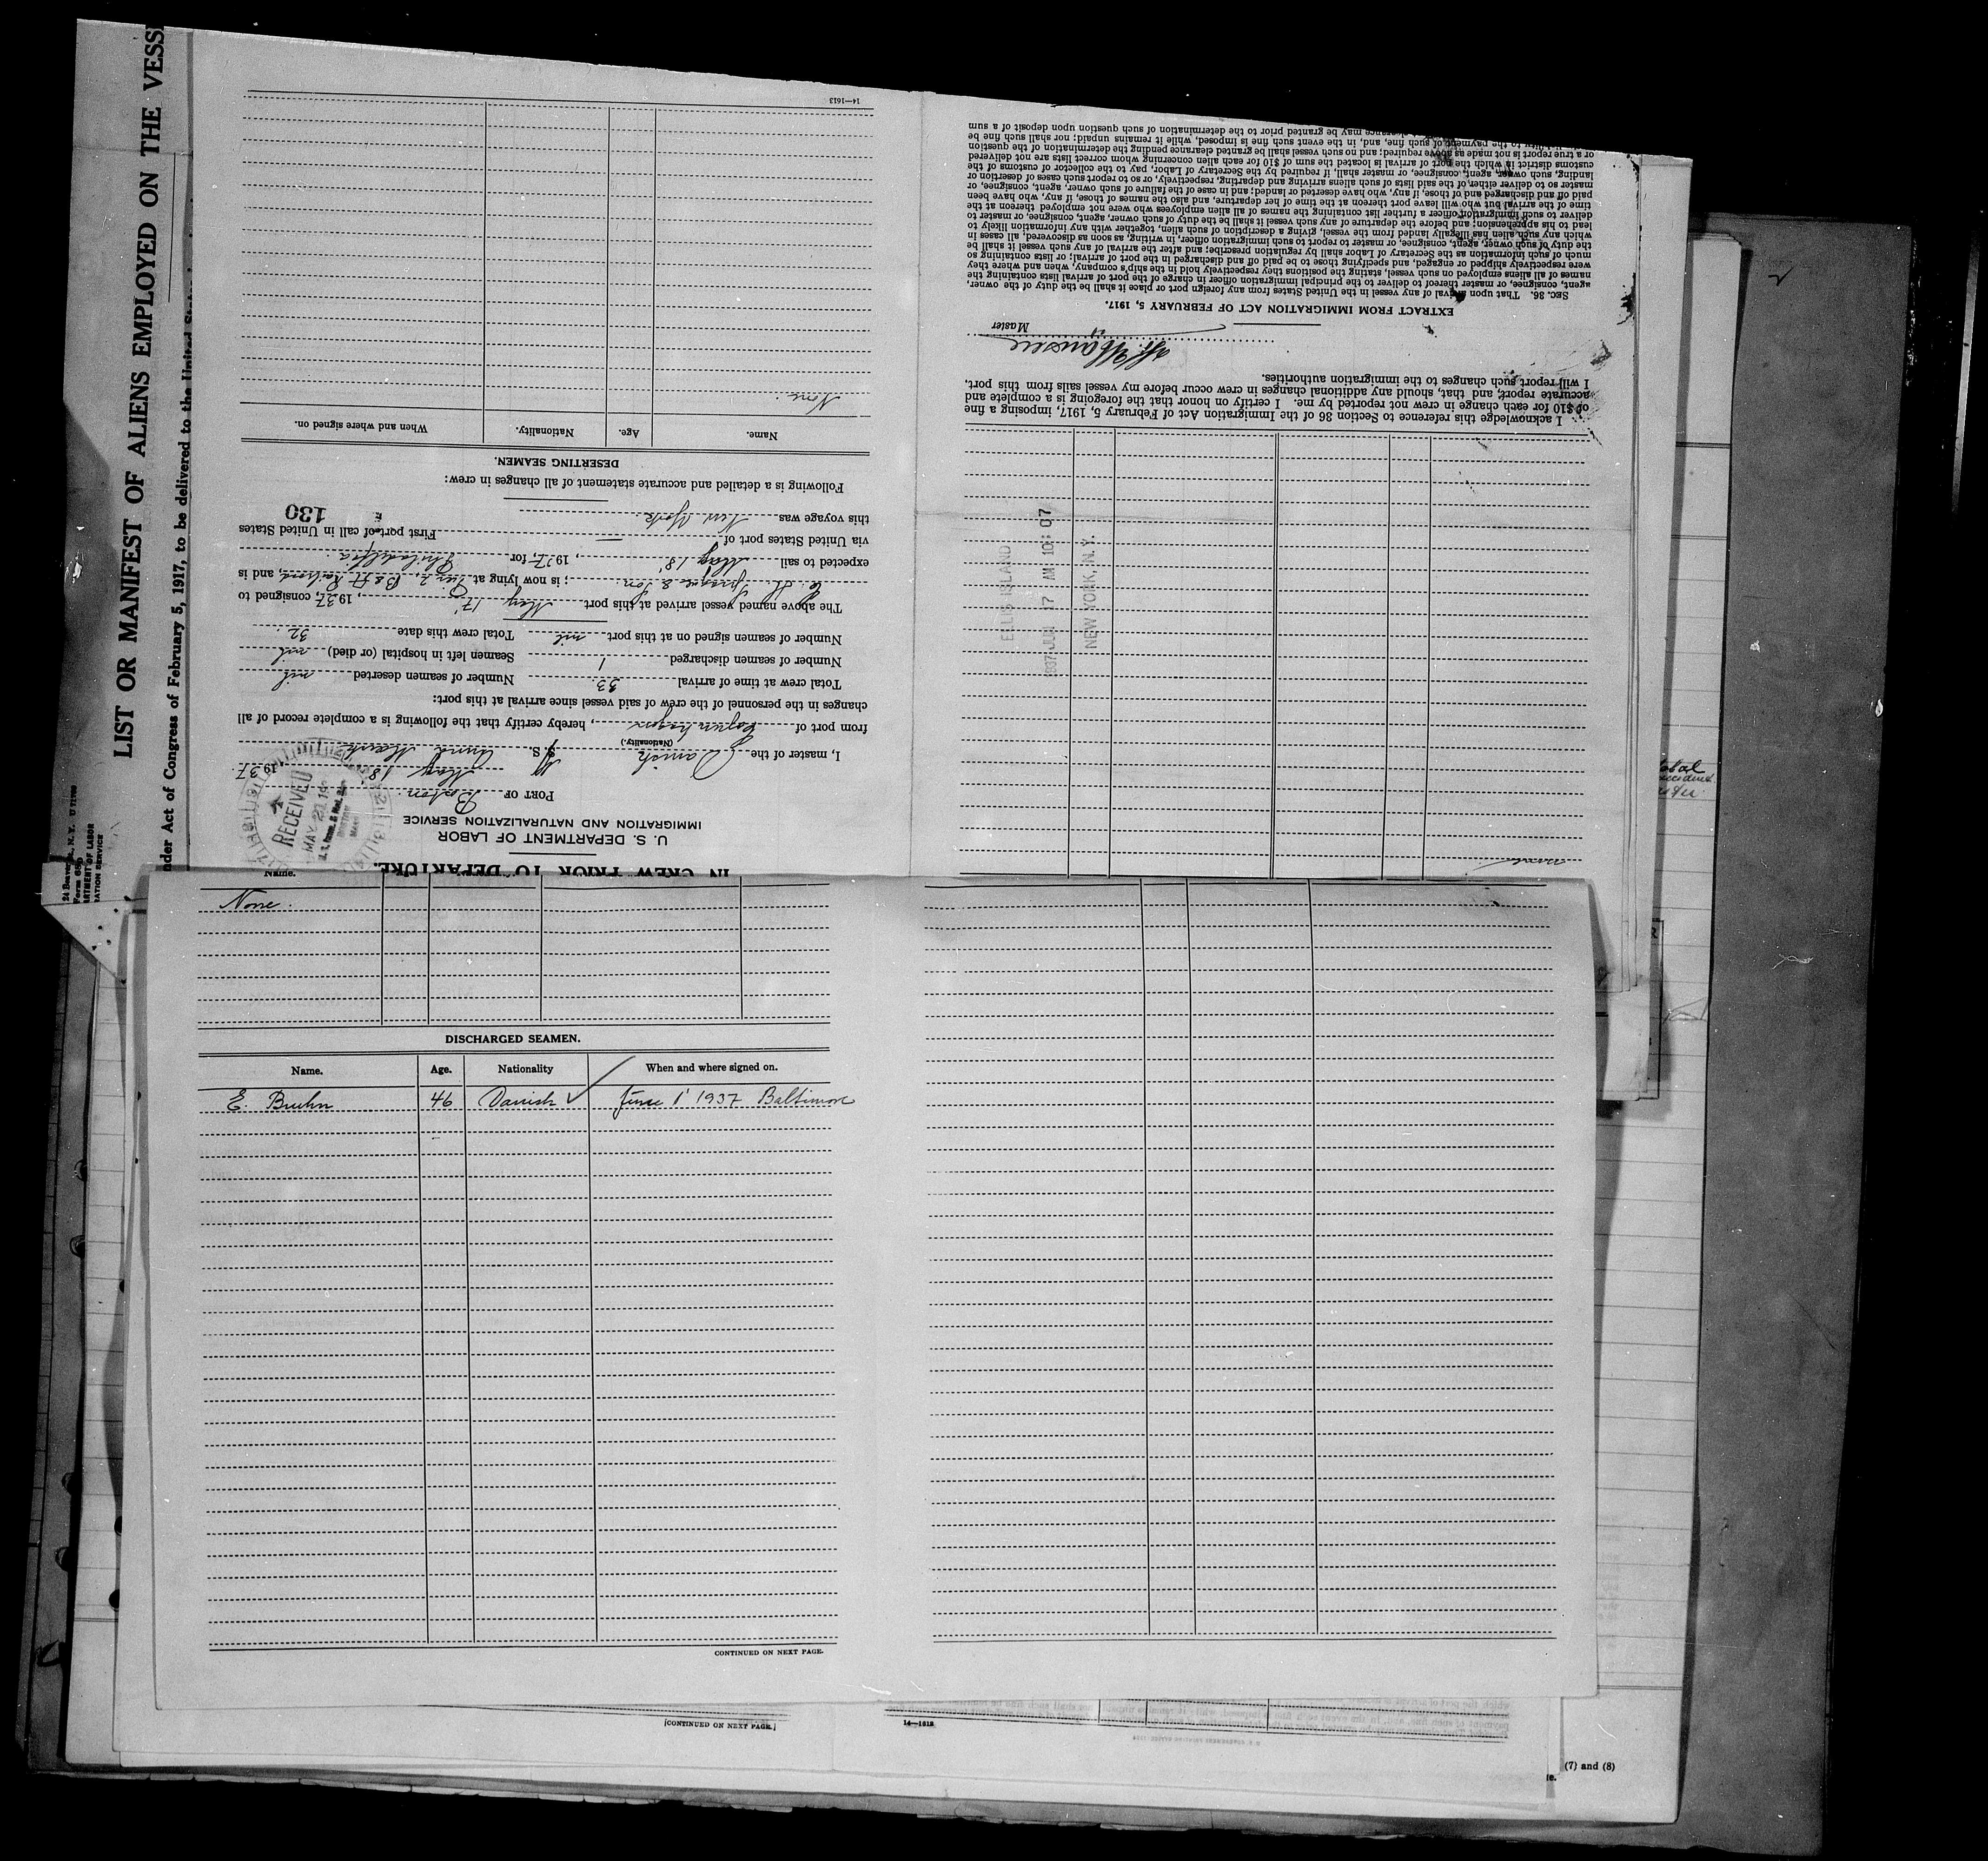 LIST OR MANIFEST OF ALIENS EMPLOYED ON THE VESS
nder Act of Congress of February 5, 1917, to be delivered to the United
24 Beaver N.Y.
Form 689
ARTMENT OF LABOR
ATION SERVICE
IN CREW PRIOR TO DEPARTURE.
U. S. DEPARTMENT OF LABOR
IMMIGRATION AND NATURALIZATION SERVICE
RECEIVED
MAY 21
PORT OF Boston.
May 18', 1937
I, master of the Danish S.S. Anna Maersk
(Nationality.)
from port of Copenhagen, hereby certify that the following is a complete record of all
changes in the personnel of the crew of said vessel since arrival at this port:
Total crew at time of arrival 33 Number of seamen deserted nil
Number of seamen discharged 1 Seamen left in hospital (or died) nil
Number of seamen signed on at this port nil Total crew this date 32.
The above named vessel arrived at this port May 17', 1937, consigned to
C. H. Sprague & Son; is now lying at Pier 2, B & A Railroad, and is
expected to sail May 18', 1937, for Philadelphia.
via United States port of — First port of call in United States
this voyage was New York.
130
Following is a detailed and accurate statement of all changes in crew:
DESERTING SEAMEN.
Name. Age. Nationality. When and where signed on.
None.
14—1613
I acknowledge this reference to Section 36 of the Immigration Act of February 5, 1917, imposing a fine
of $10 for each change in crew not reported by me. I certify on honor that the foregoing is a complete and
accurate report, and that, should any additional changes in crew occur before my vessel sails from this port,
I will report such changes to the immigration authorities.
Master
EXTRACT FROM IMMIGRATION ACT OF FEBRUARY 5, 1917.
SEC. 36. That upon arrival of any vessel in the United States from any foreign port or place it shall be the duty of the owner,
agent, consignee, or master thereof to deliver to the principal immigration officer in charge of the port of arrival lists containing the
names of all aliens employed on such vessel, stating the positions they respectively hold in the ship's company, when and where they
were respectively shipped or engaged, and specifying those to be paid off and discharged in the port of arrival; or lists containing so
much of such information as the Secretary of Labor shall by regulation prescribe; and after the arrival of any such vessel it shall be
the duty of such owner, agent, consignee, or master to report to such immigration officer, in writing, as soon as discovered, all cases in
which any such alien has illegally landed from the vessel, giving a description of such alien, together with any information likely to
lead to his apprehension; and before the departure of any such vessel it shall be the duty of such owner, agent, consignee, or master to
deliver to such immigration officer a further list containing the names of all alien employees who were not employed thereon at the
time of the arrival but who will leave port thereon at the time of her departure, and also the names of those, if any, who have been
paid off and discharged and of those, if any, who have deserted or landed; and in case of the failure of such owner, agent, consignee, or
master so to deliver either, of the said lists of such aliens arriving and departing, respectively, or so to report such cases of desertion or
landing, such owner, agent, consignee, or master shall, if required by the Secretary of Labor, pay to the collector of customs of the
customs district in which the port of arrival is located the sum of $10 for each alien concerning whom correct lists are not delivered
or a true report is not made as above required; and no such vessel shall be granted clearance pending the determination of the question
of the liability to the payment of such fine, and, in the event such fine is imposed, while it remains unpaid; nor shall such fine be
clearance may be granted prior to the determination of such question upon deposit of a sum
ELLIS ISLAND
937 JUN 17 AM 10: 07
NEW YORK, N. Y.
Name.
None.
DISCHARGED SEAMEN.
Name. Age. Nationality When and where signed on.
E. Bruhn 46 Danish June 1' 1937 Baltimore
CONTINUED ON NEXT PAGE.
[CONTINUED ON NEXT PAGE.]
14—1613
(7) and (8)